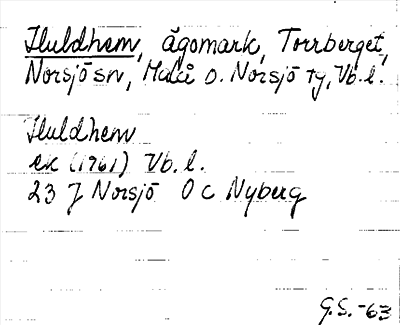 Iluldhem, ägomark, Torrberget,
Norsjö sn, Malå o. Norsjö tg, Vb. l.
Iluldhem
ek (1961) Vb. l.
23 J Norsjö O c Nyberg
G.S. -63